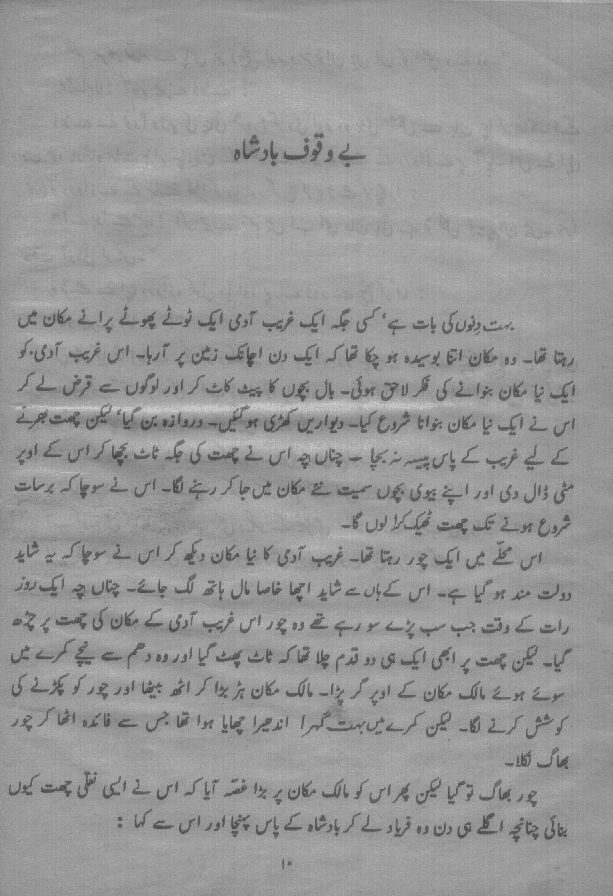 بے وقوف بادشاہ
بہت دنوں کی بات ہے، کسی جگہ ایک غریب آدمی ایک ٹوٹے پھوٹے پرانے مکان میں
رہتا تھا۔ وہ مکان اتنا بوسیدہ ہو چکا تھا کہ ایک دن اچانک زمین پر آرہا۔ اس غریب آدمی کو
ایک نیا مکان بنوانے کی فکر لاحق ہوئی۔ بال بچوں کا پیٹ کاٹ کر اور لوگوں سے قرض لے کر
اس نے ایک نیا مکان بنوانا شروع کیا۔ دیواریں کھڑی ہوگئیں۔ دروازہ بن گیا، لیکن چھت بھرنے
کے لیے غریب کے پاس پیسہ نہ بچا ۔ چناں چہ اس نے چھت کی جگہ ٹاٹ بچھا کر اس کے اوپر
مٹی ڈال دی اور اپنے بیوی بچوں سمیت نئے مکان میں جا کر رہنے لگا۔ اس نے سوچا کہ برسات
شروع ہونے تک چھت ٹھیک کرا لوں گا۔
اس محلّے میں ایک چور رہتا تھا۔ غریب آدمی کا نیا مکان دیکھ کر اس نے سوچا کہ یہ شاید
دولت مند ہو گیا ہے۔ اس کے ہاں سے شاید اچھا خاصا مال ہاتھ لگ جائے۔ چناں چہ ایک روز
رات کے وقت جب سب پڑے سو رہے تھے وہ چور اس غریب آدمی کے مکان کی چھت پر چڑھ
گیا۔ لیکن چھت پر ابھی ایک ہی دو قدم چلا تھا کہ ٹاٹ پھٹ گیا اور وہ دھم سے نیچے کمرے میں
سوئے ہوئے مالک مکان کے اوپر گر پڑا۔ مالک مکان ہڑبڑا کر اٹھ بیٹھا اور چور کو پکڑنے کی
کوشش کرنے لگا۔ لیکن کمرے میں بہت گہرا اندھیرا چھایا ہوا تھا جس سے فائدہ اٹھا کر چور
بھاگ نکلا۔
چور بھاگ تو گیا لیکن پھر اس کو مالک مکان پر بڑا غصّہ آیا کہ اس نے ایسی نقلی چھت کیوں
بنائی چنانچہ اگلے ہی دن وہ فریاد لے کر بادشاہ کے پاس پہنچا اور اس سے کہا :
۱۰